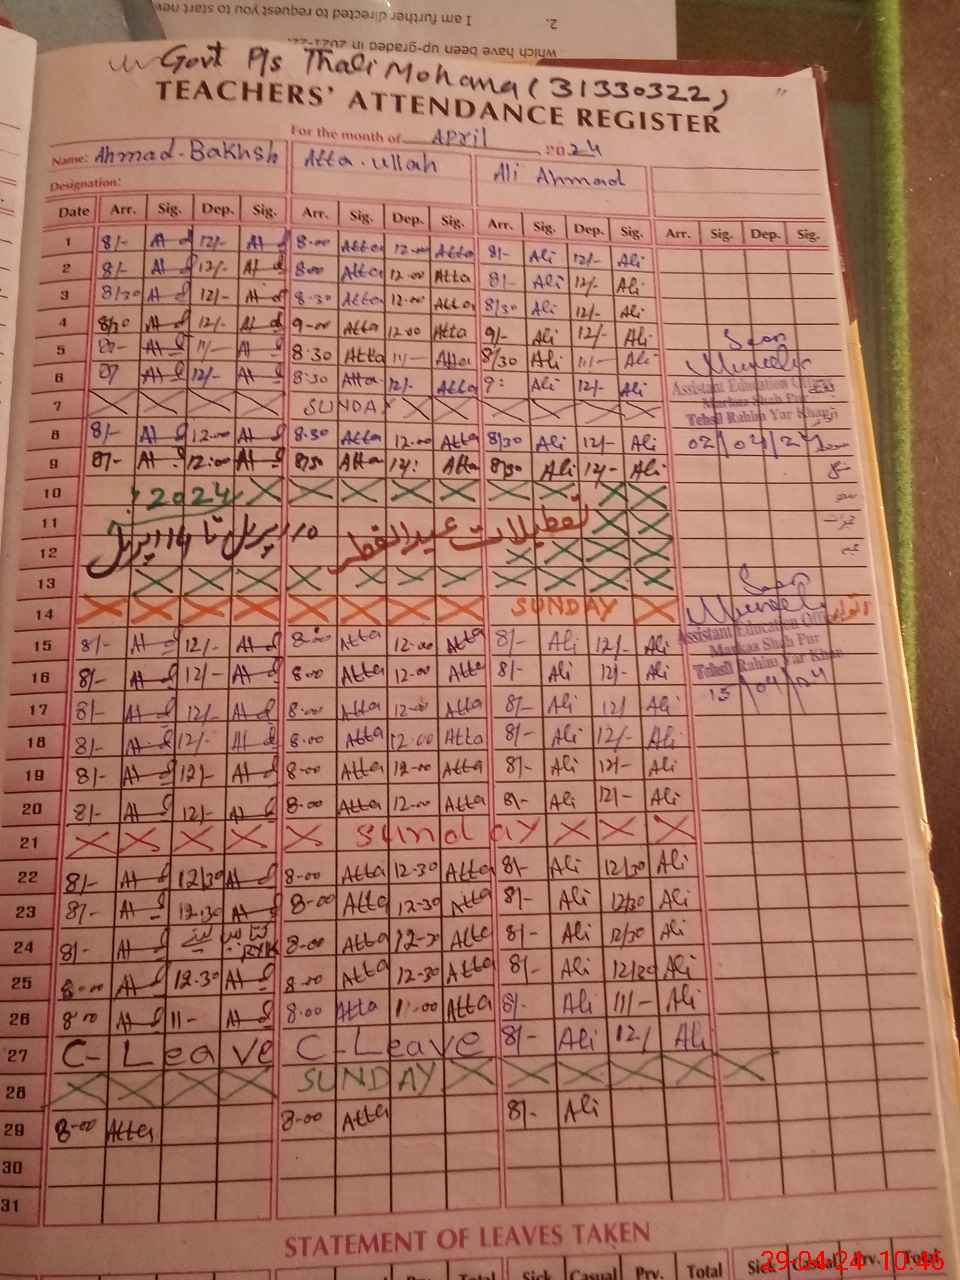 2. I am further directed to request you to start new
which have been up-graded in 2021-22
Govt P/s Thali Mohana (31330322)
TEACHERS' ATTENDANCE REGISTER
For the month of April 2024
Name: Ahmad. Bakhsh Atta. ullah Ali Ahmad
Designation:
Date Arr. Sig. Dep. Sig. Arr. Sig. Dep. Sig. Arr. Sig. Dep. Sig. Arr. Sig. Dep. Sig.
1 8/- 12/- 8-00 Atta 12-00 Atta 8/- Ali 12/- Ali
2 8/- 12/- 8-00 Atta 12-00 Atta 8/- Ali 12/- Ali
3 8/30 12/- 8-30 Atta 12-00 Atta 8/30 Ali 12/- Ali
4 8/30 12/- 9-00 Atta 12-00 Atta 9/- Ali 12/- Ali
Seen
5 11/- 8.30 Atta 11/- Atta 8/30 Ali 11/- Ali
6 12/- 8-30 Atta 12/- Atta 9: Ali 12/- Ali
Assistant Education Officer
Markaz Shah Pur
Tehsil Rahim Yar Khan
7 SUNDAY
8 8/- 12-00 8-30 Atta 12-00 Atta 8/30 Ali 12/- Ali 02/04/24
9 8/- 12:00 8/30 Atta Atta 8/30 Ali 12/- Ali
10 2024
11 10 اپریل تا 14 اپریل تعطیلات عیدالفطر
12
13
Seen
14 SUNDAY اتوار
Assistant Education Officer
Markaz Shah Pur
Tehsil Rahim Yar Khan
15 8/- 12/- 8-00 Atta 12-00 Atta 8/- Ali 12/- Ali
16 8/- 12/- 8-00 Atta 12-00 Atta 8/- Ali 12/- Ali 15/04/24
17 8/- 12/- 8-00 Atta 12-00 Atta 8/- Ali 12/ Ali
18 8/- 12/- 8-00 Atta 12-00 Atta 8/- Ali 12/- Ali
19 8/- 12/- 8-00 Atta 12-00 Atta 8/- Ali 12/- Ali
20 8/- 12/- 8-00 Atta 12-00 Atta 8/- Ali 12/- Ali
21 Sunday
22 8/- 12/30 8-00 Atta 12-30 Atta 8/- Ali 12/30 Ali
23 8/- 12-30 8-00 Atta 12-30 Atta 8/- Ali 12/30 Ali
24 8/- 8-00 Atta 12-30 Atta 8/- Ali 12/30 Ali
25 8-00 12-30 8-00 Atta 12-30 Atta 8/- Ali 12/30 Ali
26 8-00 11- 8-00 Atta 11-00 Atta 8/- Ali 11/- Ali
27 C-Leave C-Leave 8/- Ali 12/ Ali
28 SUNDAY
29 8-00 Atta 8-00 Atta 8/- Ali
30
31
STATEMENT OF LEAVES TAKEN
Sick Casual Prv. Total Sick Casual Prv. Total
29-04-24 10:46